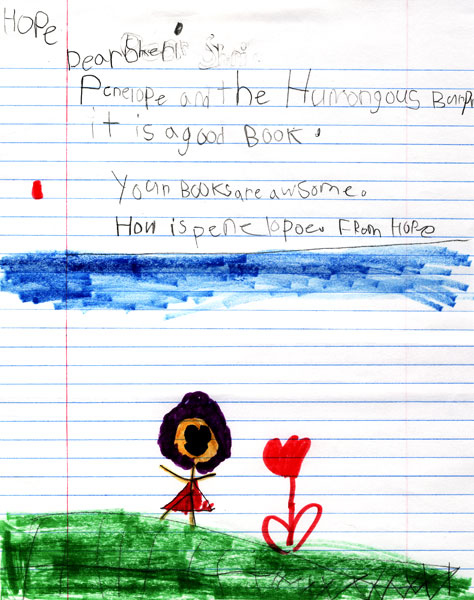 HOPe
Dear Sheri
Penelope and the Humongous Burp
it is a good BOOK.
Your BOOKS are awsome.
How is penelopoe. FRom HOPe